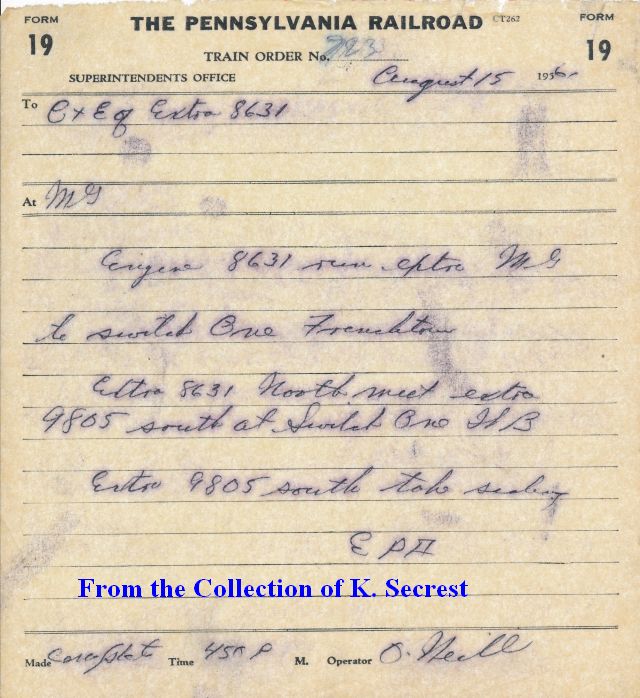 FORM THE PENNSYLVANIA RAILROAD CT262 FORM
19 TRAIN ORDER No. 723 19
SUPERINTENDENTS OFFICE August 15 1956
To C + E of Extra 8631
At MG
Engine 8631 run extra MG
to switch One Frenchtown
Extra 8631 North meet extra
9805 south at Switch One
Extra 9805 south take siding
From the Collection of K. Secrest
Made Complete Time 450 P M. Operator O. Neill